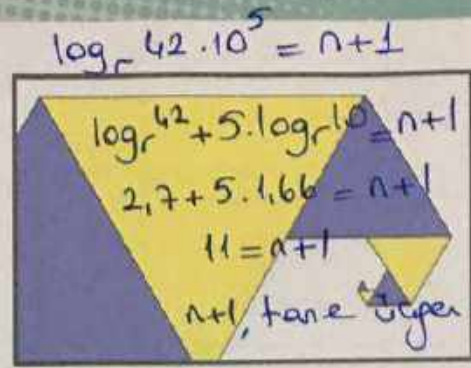 log_r 42 · 10^5 = n+1
log_r 42 + 5 · log_r 10 = n+1
2,7 + 5 · 1,66 = n+1
11 = n+1
n+1, tane üçgen